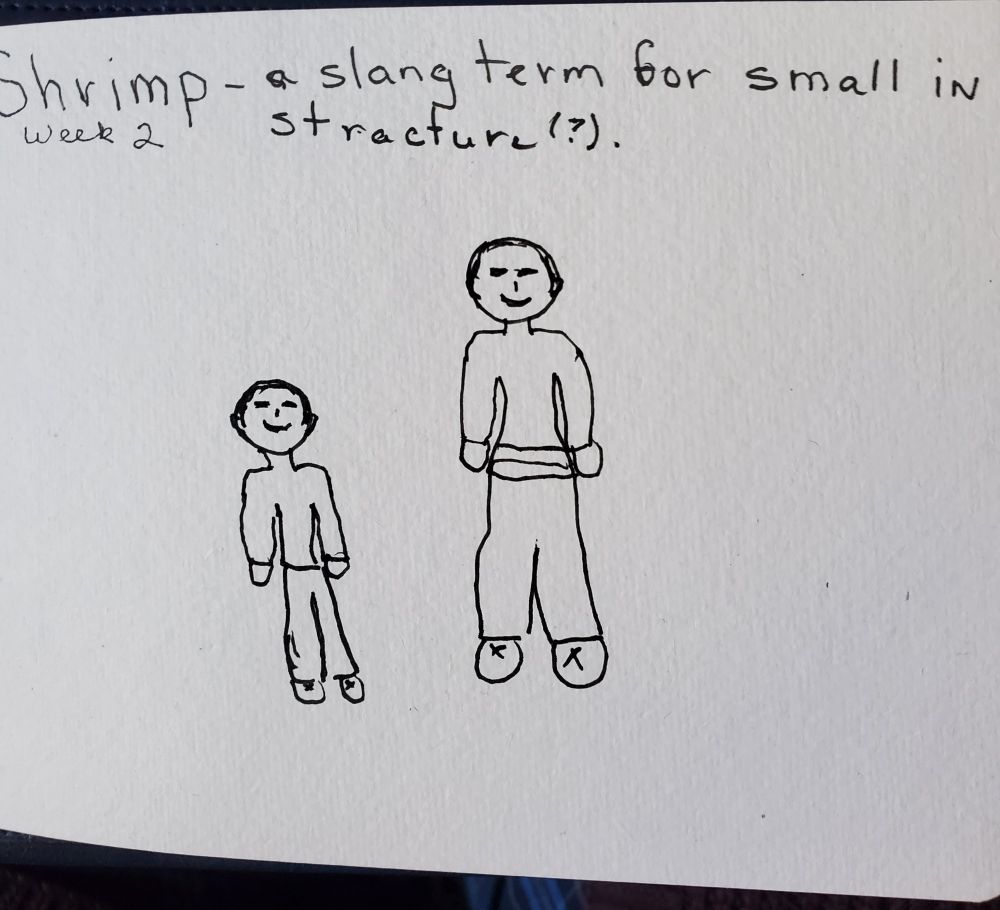 Shrimp - a slang term for small in
week 2 stracture (?).